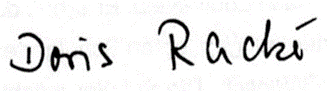 Doris Racké